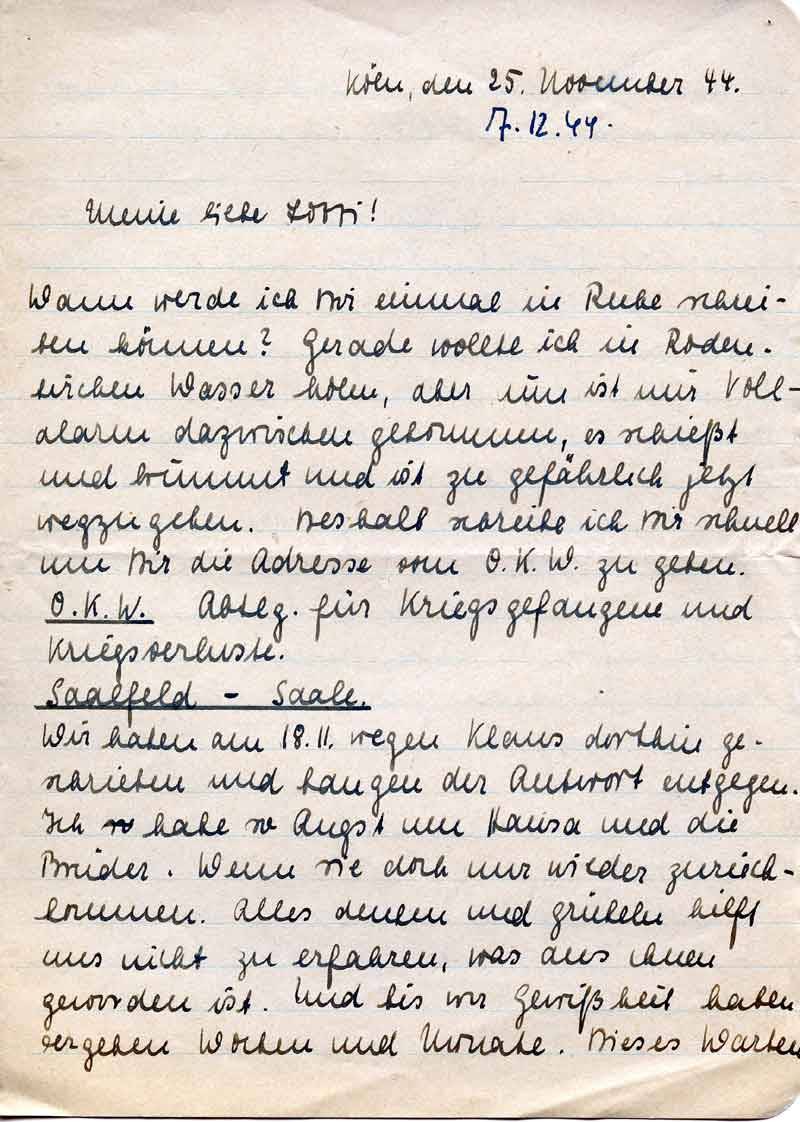 Köln, den 25. November 44.
7.12.44.
Meine liebe Lotti!
Wann werde ich Dir einmal in Ruhe schrei-
ben können? Gerade wollte ich in Roden-
kirchen Wasser holen, aber nun ist mir Voll-
alarm dazwischen gekommen, es schießt
und brummt und ist zu gefährlich jetzt
wegzugehen. Deshalb schreibe ich Dir schnell
um Dir die Adresse vom O.K.W. zu geben.
O.K.W. Abtlg. für Kriegsgefangene und
Kriegsverluste.
Saalfeld - Saale.
Wir haben am 18.11. wegen Klaus dorthin ge-
schrieben und bangen der Antwort entgegen.
Ich habe so Angst um Hansa und die
Brüder. Wenn sie doch nur wieder zurück-
kommen. Alles denken und grübeln hilft
uns nicht zu erfahren, was aus ihnen
geworden ist. Und bis wir Gewißheit haben
vergehen Wochen und Monate. Dieses Warten